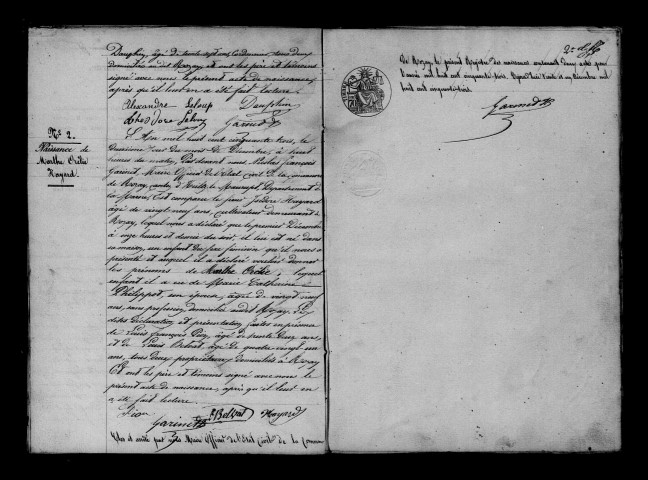 Dauphin, âgé de trente sept ans, Cordonnier, tous deux
domiciliés au dit Rozay et ont les père et témoins
signé avec nous le présent acte de naissance,
après qu'il leur en a été fait lecture.
Alexandre Leloup Dauphin
Garinet
N° 2.
Naissance de
Marthe Orélie
Hayard.
L'An mil huit cent cinquante trois, le
deuxième jour du mois de Décembre, à huit
heures du matin, Par devant nous Nicolas François
Garinet, Maire Officier de l'état civil de la commune
de Rozay, canton d' Département de
la Marne, Est comparu le sieur Isidore Hayard
âgé de vingt neuf ans, cultivateur demeurant à
Rozay, lequel nous a déclaré que le premier Décembre
à onze heures et demie du soir, il lui est né dans
sa maison, un enfant du sexe féminin qu'il nous a
présenté et auquel il a déclaré vouloir donner
les prénoms de Marthe Orélie, lequel
enfant il a eu de Marie Catherine
Philippot, son épouse, âgée de vingt neuf
ans, sans profession, domiciliée audit Rozay. Les
dites déclaration et présentation faites en présence
de Louis François âgé de trente deux ans
et de Louis âgé de quatre-vingt un
ans, tous deux propriétaires domiciliés à Rozay
Et ont les père et témoins signé avec nous le
présent acte de naissance, après qu'il leur en
a été fait lecture.
Hayard
Garinet
Clos et arrêté par nous Maire Officier de l'Etat Civil de la Commune
2e et
de Rozay le présent Registre des naissances contenant deux actes pour
l'année mil huit cent cinquante trois. Rozay le trente et un Décembre mil
huit cent cinquante trois.
Garinet